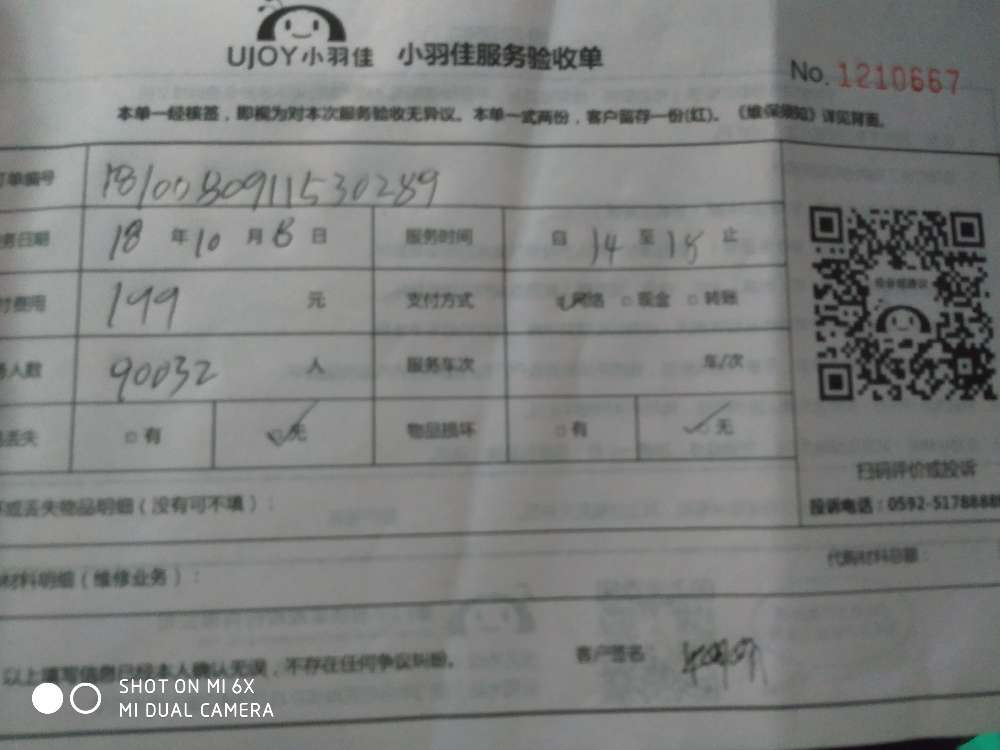 UJOY小羽佳 小羽佳服务验收单
No. 1210667
本单一经核签，即视为对本次服务验收无异议。本单一式两份，客户留存一份(红)。《维保须知》详见背面。
单编号 1810080911530289
务日期 18 年 10 月 8 日 服务时间 自 14 至 18 止
付费用 199 元 支付方式 网络 □现金 □转账
人数 90032 人 服务车次 车/次
丢失 □有 无 物品损坏 □有 无
扫码评价或投诉
坏或丢失物品明细（没有可不填）：
投诉电话：0592-5178888
材料明细（维修业务）：
代购材料总额
以上填写信息已经本人确认无误，不存在任何争议纠纷。 客户签名
SHOT ON MI 6X
MI DUAL CAMERA